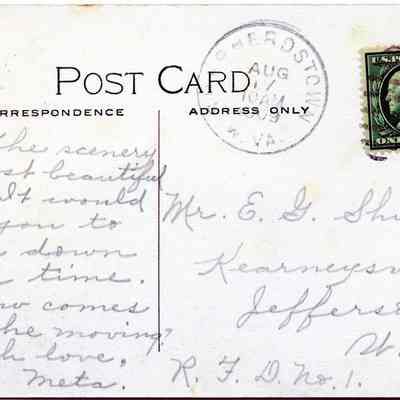 POST CARD
RRESPONDENCE
ADDRESS ONLY
HERDSTOWN
AUG
17
10AM
W.VA.
U.S.PO
The scenery
st beautiful
It would
you to
down
time.
w comes
he moving?
h love,
Meta.
Mr. E. G. Sh
Kearneysv
Jefferso
W.
R. F. D. No. 1.